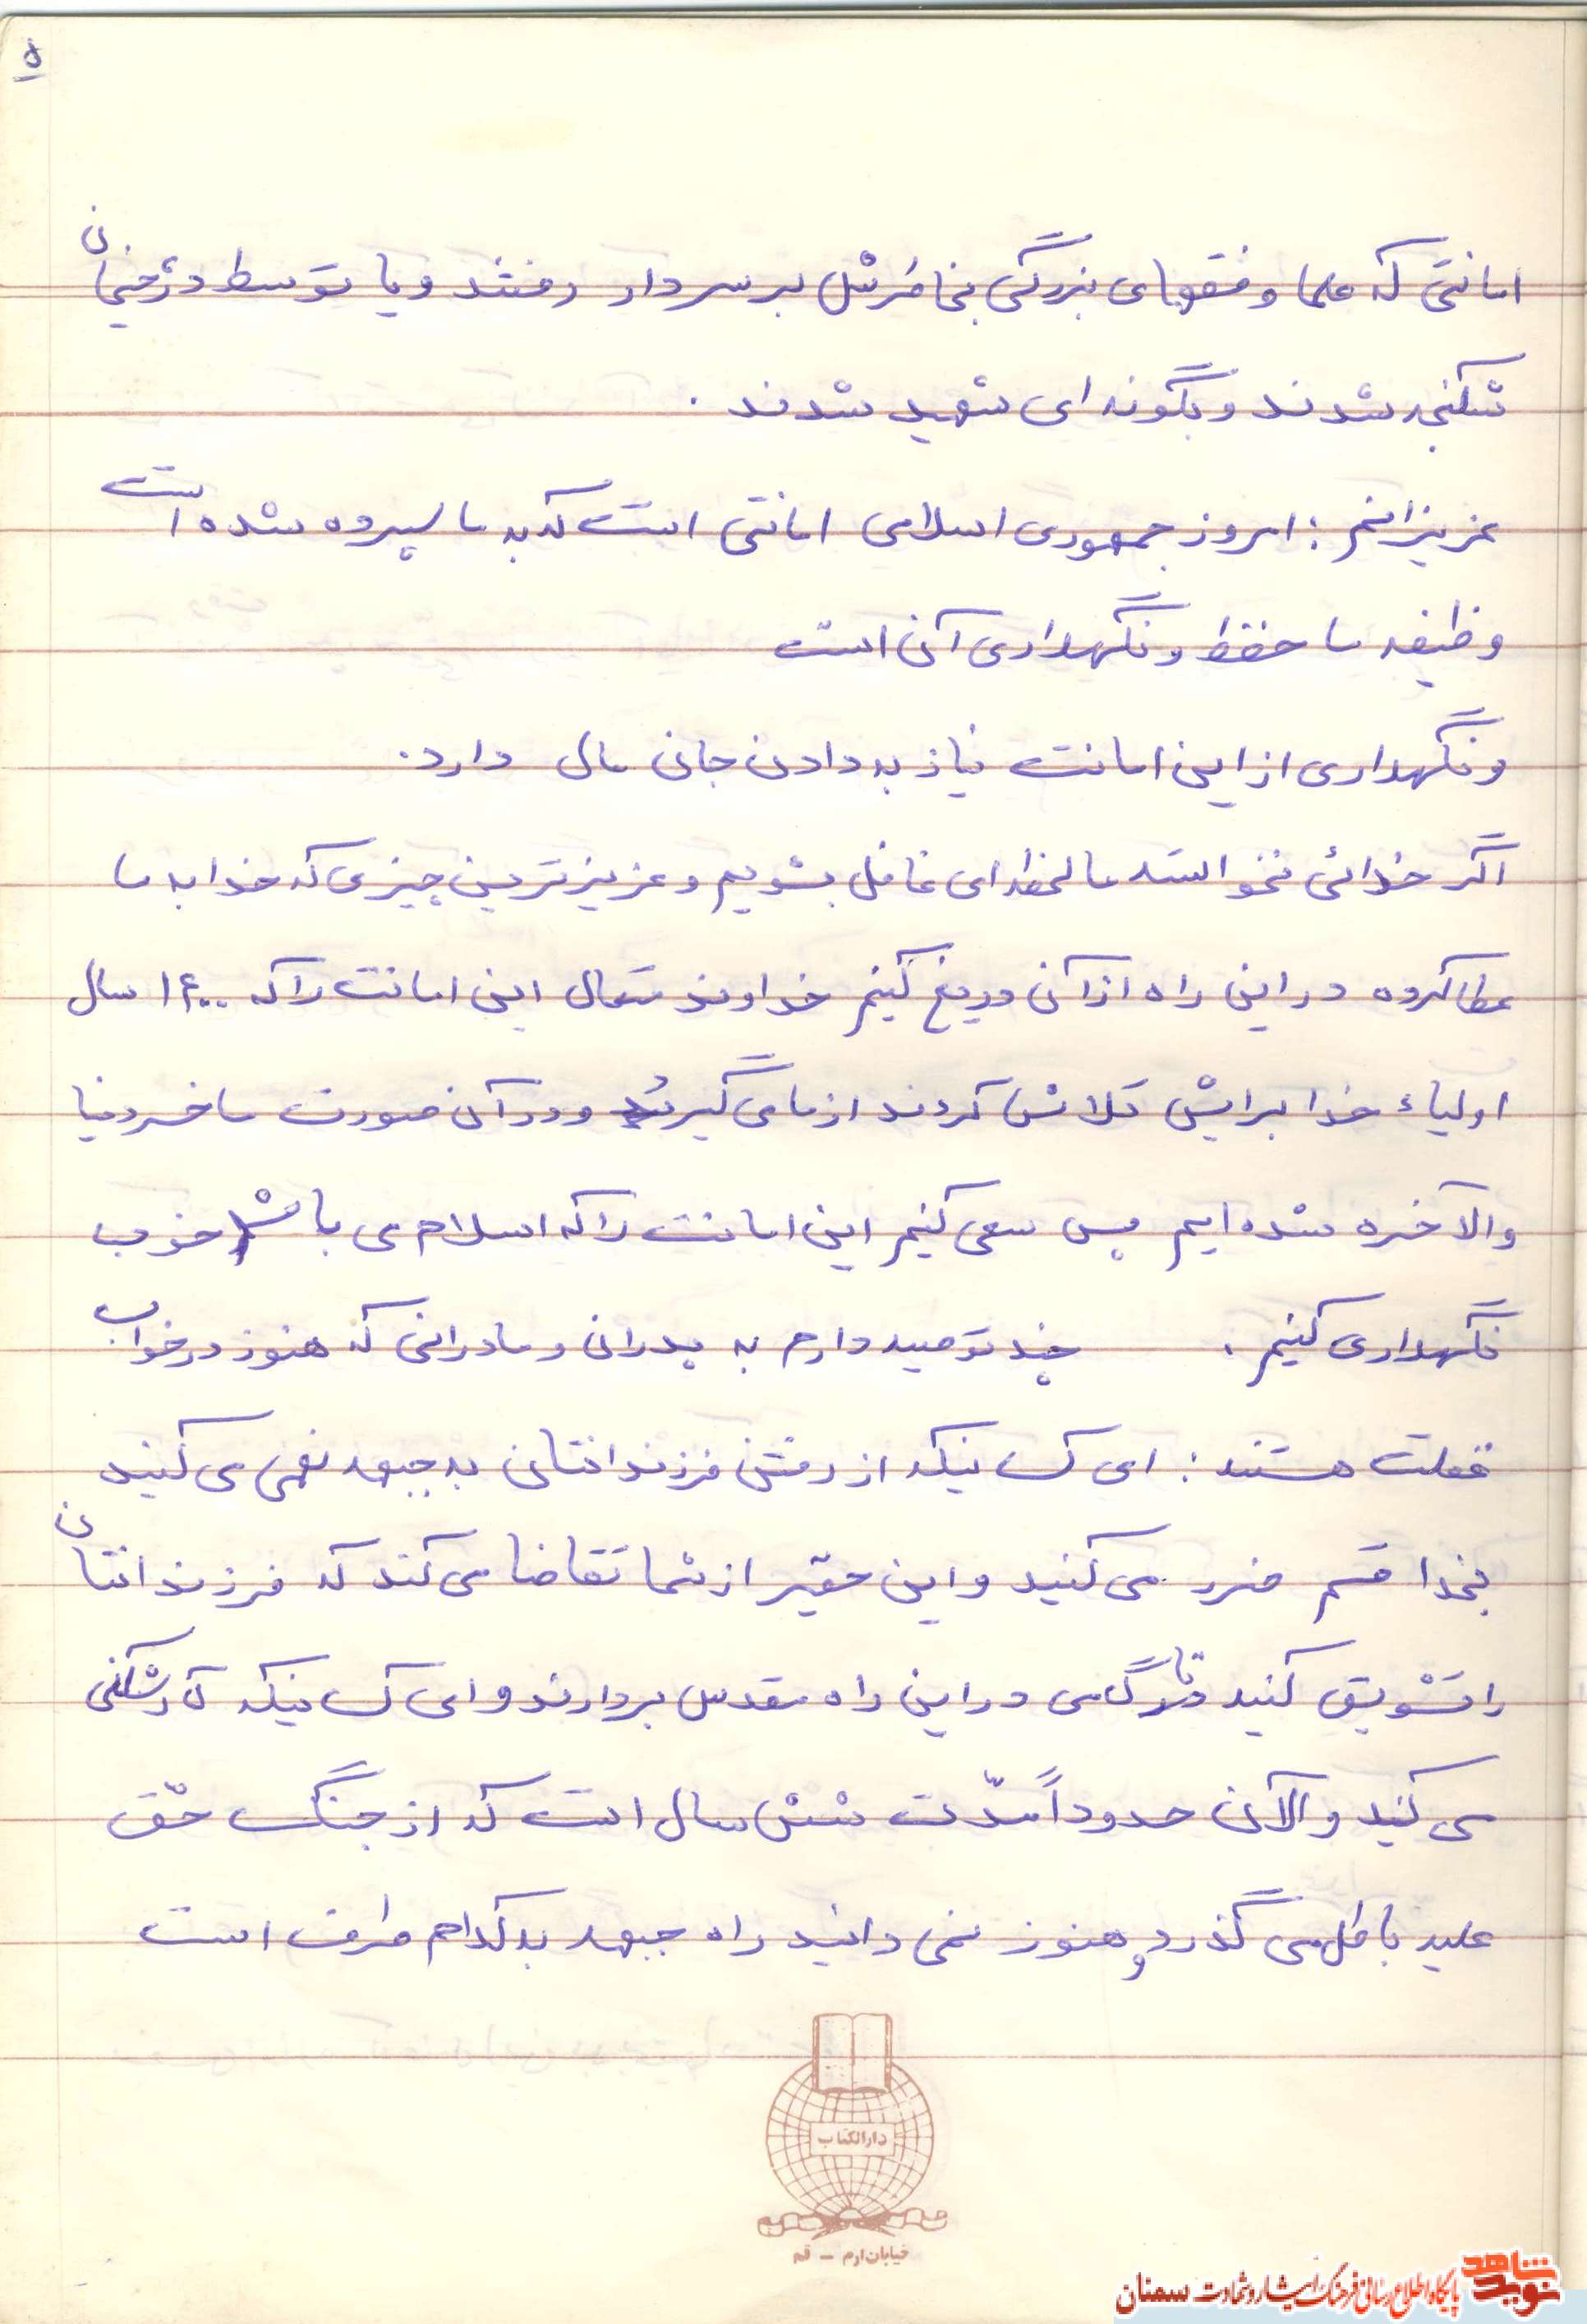 ۵
امانتی که علما و فقهای بزرگی بخاطرش بر سر دار رفتند و یا توسط دژخیمان
شکنجه شدند و بگونه ای شهید شدند .
عزیزانم : امروز جمهوری اسلامی امانتی است که به ما سپرده شده است
وظیفه ما حفظ و نگهداری آن است
و نگهداری از این امانت نیاز به دادن جان مال دارد.
اگر خدائی نخواسته ما لحظه ای غافل بشویم و عزیزترین چیزی که خدا به ما
عطا کرده در این راه از آن دریغ کنیم خداوند متعال این امانت را که ۱۴۰۰ سال
اولیاء خدا برایش تلاش کردند از ما می گیرد و در آن صورت ما خسر دنیا
والاخره شده ایم پس سعی کنیم این امانت را که اسلام می باشد خوب
نگهداری کنیم . چند توصیه دارم به پدران و مادرانی که هنوز در خواب
غفلت هستند : ای کسانیکه از رفتن فرزندانتان به جبهه نهی می کنید
بخدا قسم ضرر می کنید و این حقیر از شما تقاضا می کند که فرزندانتان
را تشویق کنید تا گامی در این راه مقدس بردارند و ای کسانیکه کارشکنی
می کنید و الآن حدوداً مدّت شش سال است که از جنگ حقّ
علیه باطل می گذرد و هنوز نمی دانید راه جبهه به کدام طرف است
دارالکتاب
خیابان ارم - قم
نوید شاهد
پایگاه اطلاع رسانی فرهنگ ایثار و شهادت سمنان